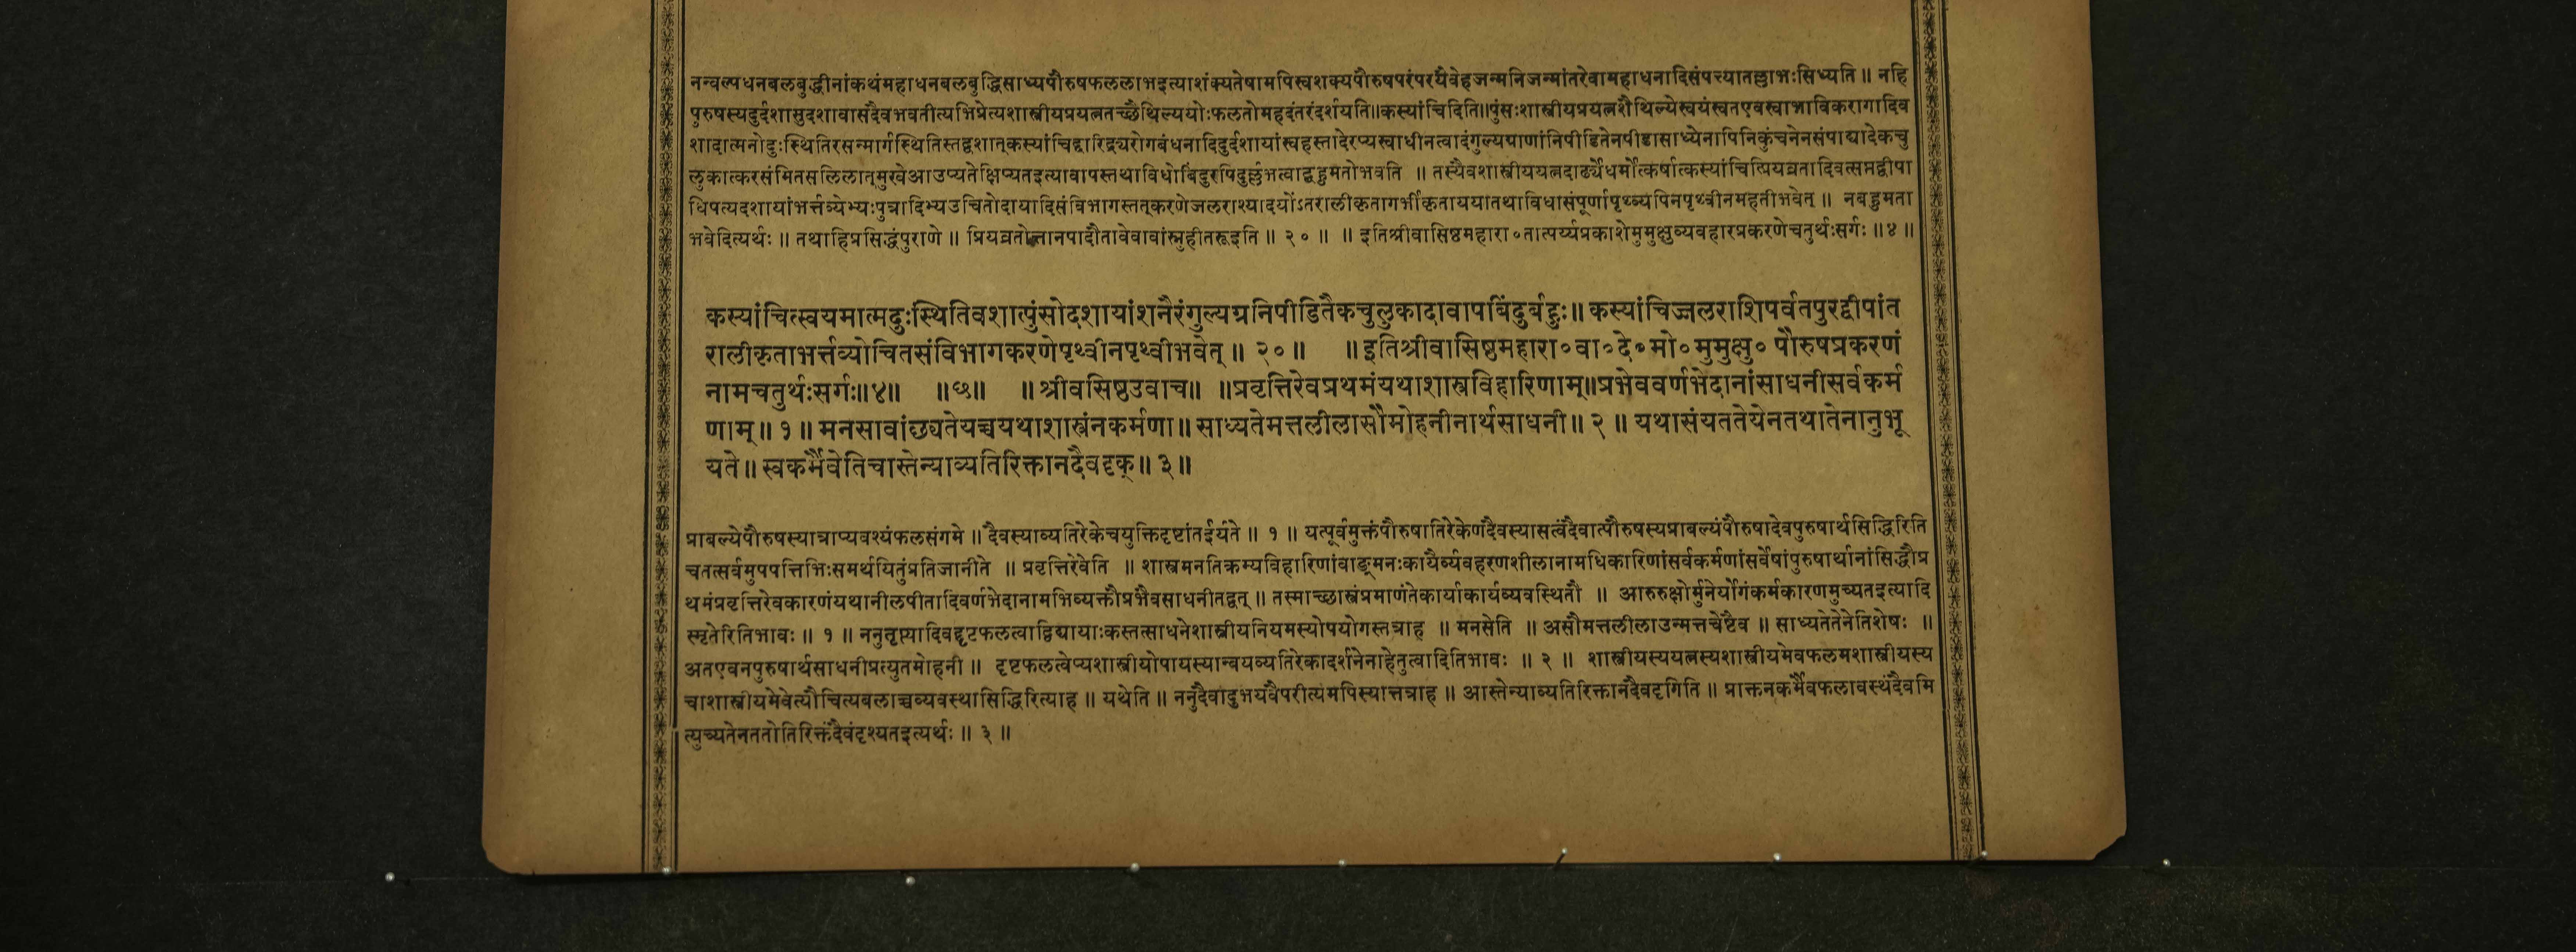 नन्वल्पधनबलबुद्धीनांकथंमहाधनबलबुद्धिसाध्यपौरुषफललाभइत्याशंक्यतेषामपिस्वशक्यपौरुषपरंपरयैवेहजन्मनिजन्मांतरेवामहाधनादिसंपत्त्यातल्लाभःसिध्यति ॥ नहि
पुरुषस्यदुर्दशासुदशावासदैवभवतीत्यभिप्रेत्यशास्त्रीयप्रयत्नतच्छैथिल्ययोःफलतोमहदंतरंदर्शयति॥कस्यांचिदिति॥पुंसःशास्त्रीयप्रयत्नशैथिल्येस्वयंस्वतएवस्वाभाविकरागादिव
शादात्मनोदुःस्थितिरसन्मार्गस्थितिस्तद्वशात्कस्यांचिद्दारिद्र्यरोगबंधनादिदुर्दशायांस्वहस्तादेरप्यस्वाधीनत्वादंगुल्यग्राणांनिपीडितेनपीडासाध्येनापिनिकुंचनेनसंपाद्यादेकचु
लुकात्करसंमितसलिलात्मुखेआउप्यतेक्षिप्यतइत्यावापस्तथाविधोबिंदुरपिदुर्लुभत्वाद्बहुमतोभवति ॥ तस्यैवशास्त्रीययत्नदार्ढ्येधर्मोत्कर्षात्कस्यांचित्प्रियव्रतादिवत्सप्तद्वीपा
धिपत्यदशायांभर्त्तव्येभ्यःपुत्रादिभ्यउचितोदायादिसंविभागस्तत्करणेजलराश्यादयोंऽतरालीकृतागर्भीकृताययातथाविधासंपूर्णापृथ्व्यपिनपृथ्वीनमहतीभवेत् ॥ नबहुमता
भवेदित्यर्थः ॥ तथाहिप्रसिद्धंपुराणे ॥ प्रियव्रतोत्तानपादौतावेवावांस्नुहीतरूइति ॥ २० ॥ ॥ इतिश्रीवासिष्ठमहारा०तात्पर्य्यप्रकाशेमुमुक्षुव्यवहारप्रकरणेचतुर्थःसर्गः ॥४॥
कस्यांचित्स्वयमात्मदुःस्थितिवशात्पुंसोदशायांशनैरंगुल्यग्रनिपीडितैकचुलुकादावापबिंदुर्बहुः॥ कस्यांचिज्जलराशिपर्वतपुरद्वीपांत
रालीकृताभर्त्तव्योचितसंविभागकरणेपृथ्वीनपृथ्वीभवेत् ॥ २० ॥ ॥ इतिश्रीवासिष्ठमहारा०वा०दे०मो०मुमुक्षु०पौरुषप्रकरणं
नामचतुर्थःसर्गः॥४॥ ॥छ॥ ॥ श्रीवसिष्ठउवाच॥ ॥प्रवृत्तिरेवप्रथमंयथाशास्त्रविहारिणाम्॥प्रभेववर्णभेदानांसाधनीसर्वकर्म
णाम् ॥ १ ॥ मनसावांछ्यतेयच्चयथाशास्त्रंनकर्मणा ॥ साध्यतेमत्तलीलासौमोहनीनार्थसाधनी ॥ २ ॥ यथासंयततेयेनतथातेनानुभू
यते ॥ स्वकर्मैवेतिचास्तेन्याव्यतिरिक्तानदैवदृक् ॥ ३ ॥
प्राबल्येपौरुषस्यात्राप्यवश्यंफलसंगमे ॥ दैवस्याव्यतिरेकेचयुक्तिदृष्टांतईर्यते ॥ १ ॥ यत्पूर्वमुक्तंपौरुषातिरेकेणदैवस्यासत्वंदैवात्पौरुषस्यप्राबल्यंपौरुषादेवपुरुषार्थसिद्धिरिति
चतत्सर्वमुपपत्तिभिःसमर्थयितुंप्रतिजानीते ॥ प्रवृत्तिरेवेति ॥ शास्त्रमनतिक्रम्यविहारिणांवाङ्मनःकायैर्व्यवहरणशीलानामधिकारिणांसर्वकर्मणांसर्वेषांपुरुषार्थानांसिद्धौप्र
थमंप्रवृत्तिरेवकारणंयथानीलपीतादिवर्णभेदानामभिव्यक्तौप्रभैवसाधनीतद्वत् ॥ तस्माच्छास्त्रंप्रमाणंतेकार्याकार्यव्यवस्थितौ ॥ आरुरुक्षोर्मुनेर्योगंकर्मकारणमुच्यतइत्यादि
स्मृतेरितिभावः ॥ १ ॥ ननुतृप्त्यादिवद्दृष्टफलत्वाद्विद्यायाःकस्तत्साधनेशास्त्रीयनियमस्योपयोगस्तत्राह ॥ मनसेति ॥ असौमत्तलीलाउन्मत्तचेष्टैव ॥ साध्यतेतेनेतिशेषः ॥
अतएवनपुरुषार्थसाधनीप्रत्युतमोहनी ॥ दृष्टफलत्वेप्यशास्त्रीयोपायस्यान्वयव्यतिरेकादर्शनेनाहेतुत्वादितिभावः ॥ २ ॥ शास्त्रीयस्ययत्नस्यशास्त्रीयमेवफलमशास्त्रीयस्य
चाशास्त्रीयमेवेत्यौचित्यबलाच्चव्यवस्थासिद्धिरित्याह ॥ यथेति ॥ ननुदैवादुभयवैपरीत्यमपिस्यात्तत्राह ॥ आस्तेन्याव्यतिरिक्तानदैवदृगिति ॥ प्राक्तनकर्मैवफलावस्थंदैवमि
त्युच्यतेनततोतिरिक्तंदैवंदृश्यतइत्यर्थः ॥ ३ ॥